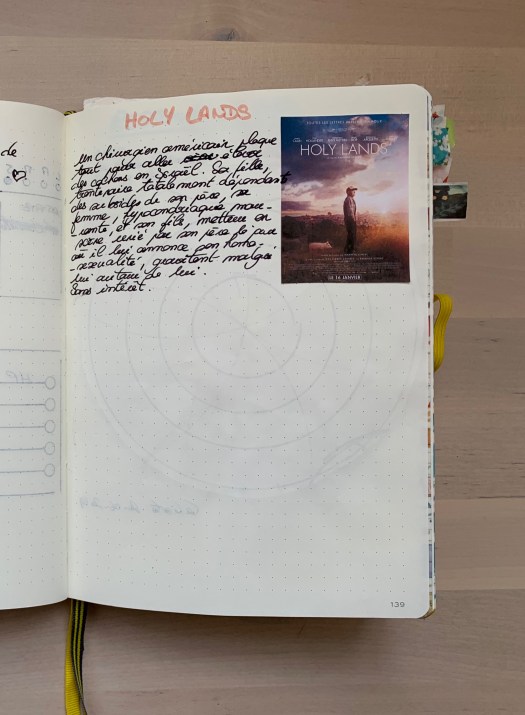 de
HOLY LANDS
Un chirurgien américain plaque
tout pour aller élever
des cochons en Israël. Sa fille,
trentenaire totalement dépendante
des subsides de son père, sa
femme, hypocondriaque mou-
-rante, et son fils, metteur en
scène renié par son père le jour
où il lui annonce son homo-
-sexualité, gravitent malgré
lui autour de lui.
Sans intérêt.
HOLY LANDS
LE 16 JANVIER
139